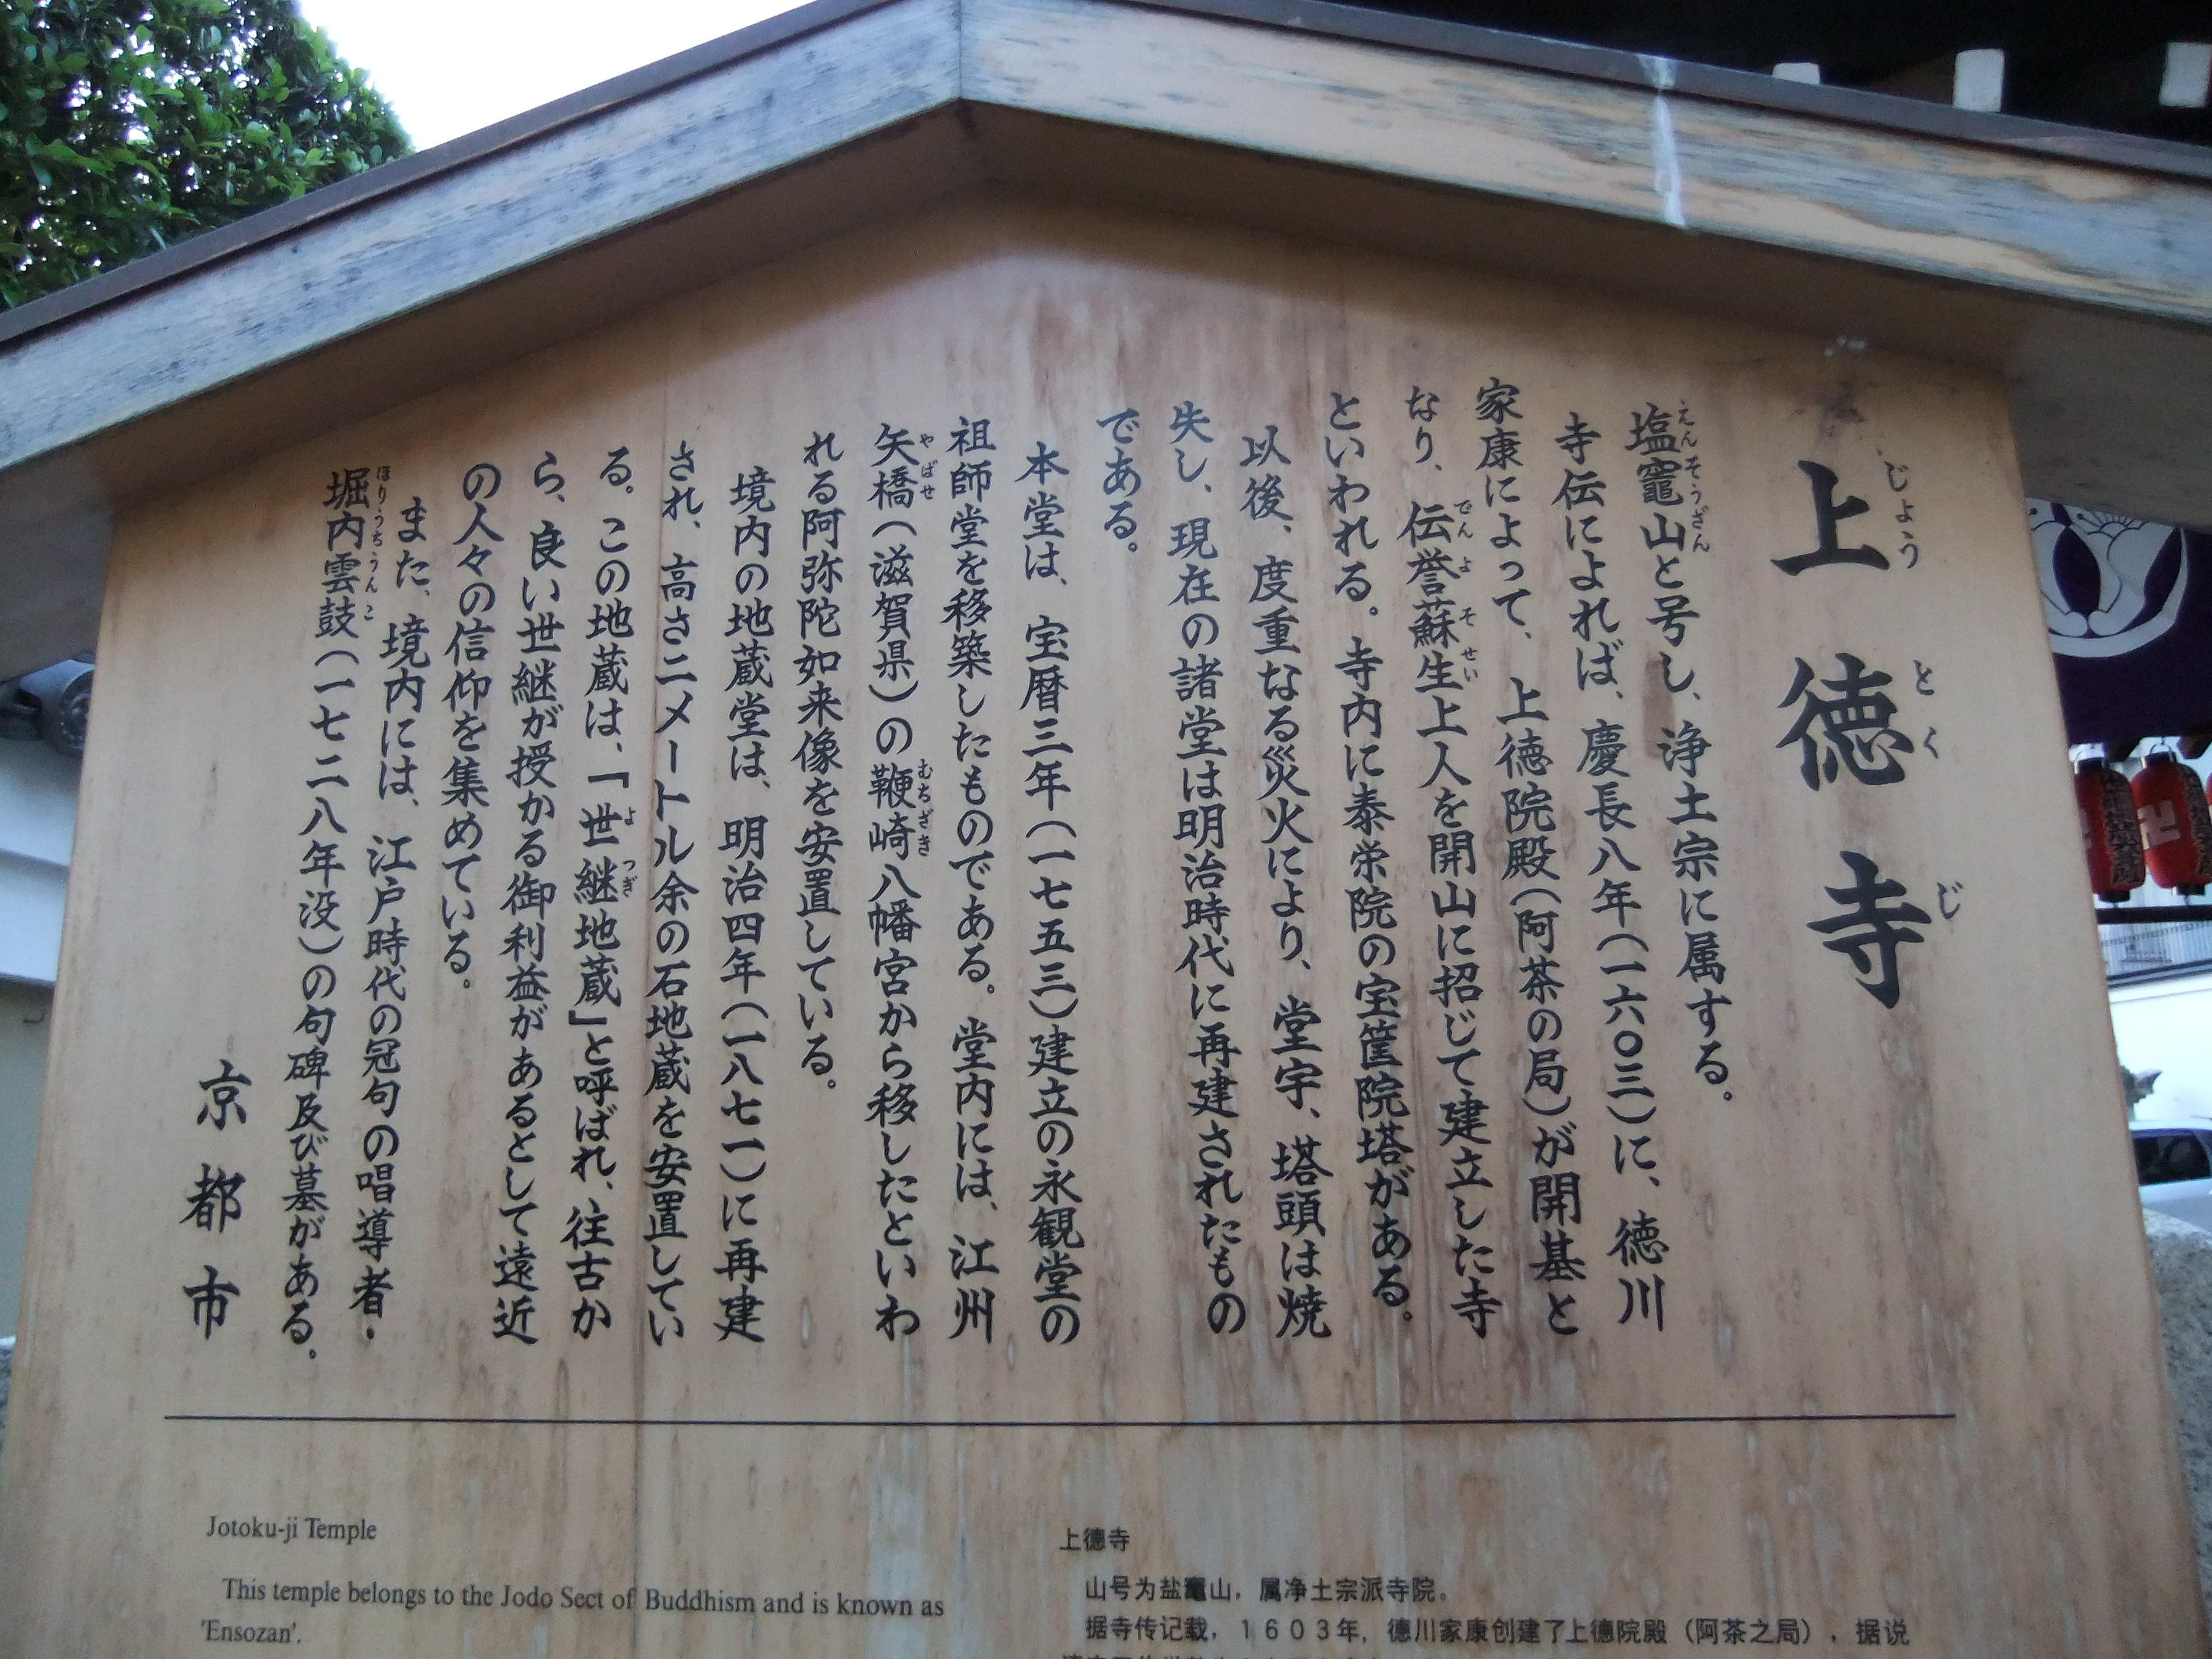 上徳寺
じょうとくじ
塩竈山と号し、浄土宗に属する。
えんそうざん
寺伝によれば、慶長八年(一六〇三)に、徳川
家康によって、上徳院殿(阿茶の局)が開基と
なり、伝誉蘇生上人を開山に招じて建立した寺
でんよそせい
といわれる。寺内に泰栄院の宝筐院塔がある。
以後、度重なる災火により、堂宇、塔頭は焼
失し、現在の諸堂は明治時代に再建されたもの
である。
本堂は、宝暦三年(一七五三)建立の永観堂の
祖師堂を移築したものである。堂内には、江州
矢橋(滋賀県)の鞭崎八幡宮から移したといわ
やばせ
むちざき
れる阿弥陀如来像を安置している。
境内の地蔵堂は、明治四年(一八七一)に再建
され、高さ二メートル余の石地蔵を安置してい
る。この地蔵は、「世継地蔵」と呼ばれ、往古か
よつぎ
ら、良い世継が授かる御利益があるとして遠近
の人々の信仰を集めている。
また、境内には、江戸時代の冠句の唱導者・
堀内雲鼓(一七二八年没)の句碑及び墓がある。
ほりうちうんこ
京都市
Jotoku-ji Temple
This temple belongs to the Jodo Sect of Buddhism and is known as
'Ensozan'.
上德寺
山号为盐竈山，属净土宗派寺院。
据寺传记载，1603年，德川家康创建了上德院殿（阿茶之局），据说